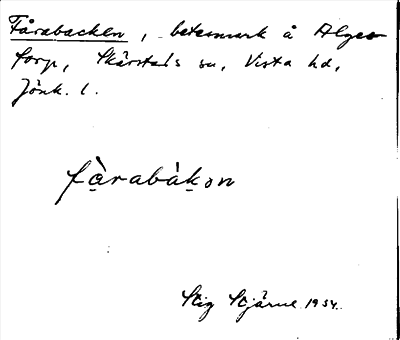 Fårabacken, betesmark å Alges-
torp, Skärstads sn, Vista hd,
Jönk. l.
fàrabàkon
Stig Stjärne 1934.